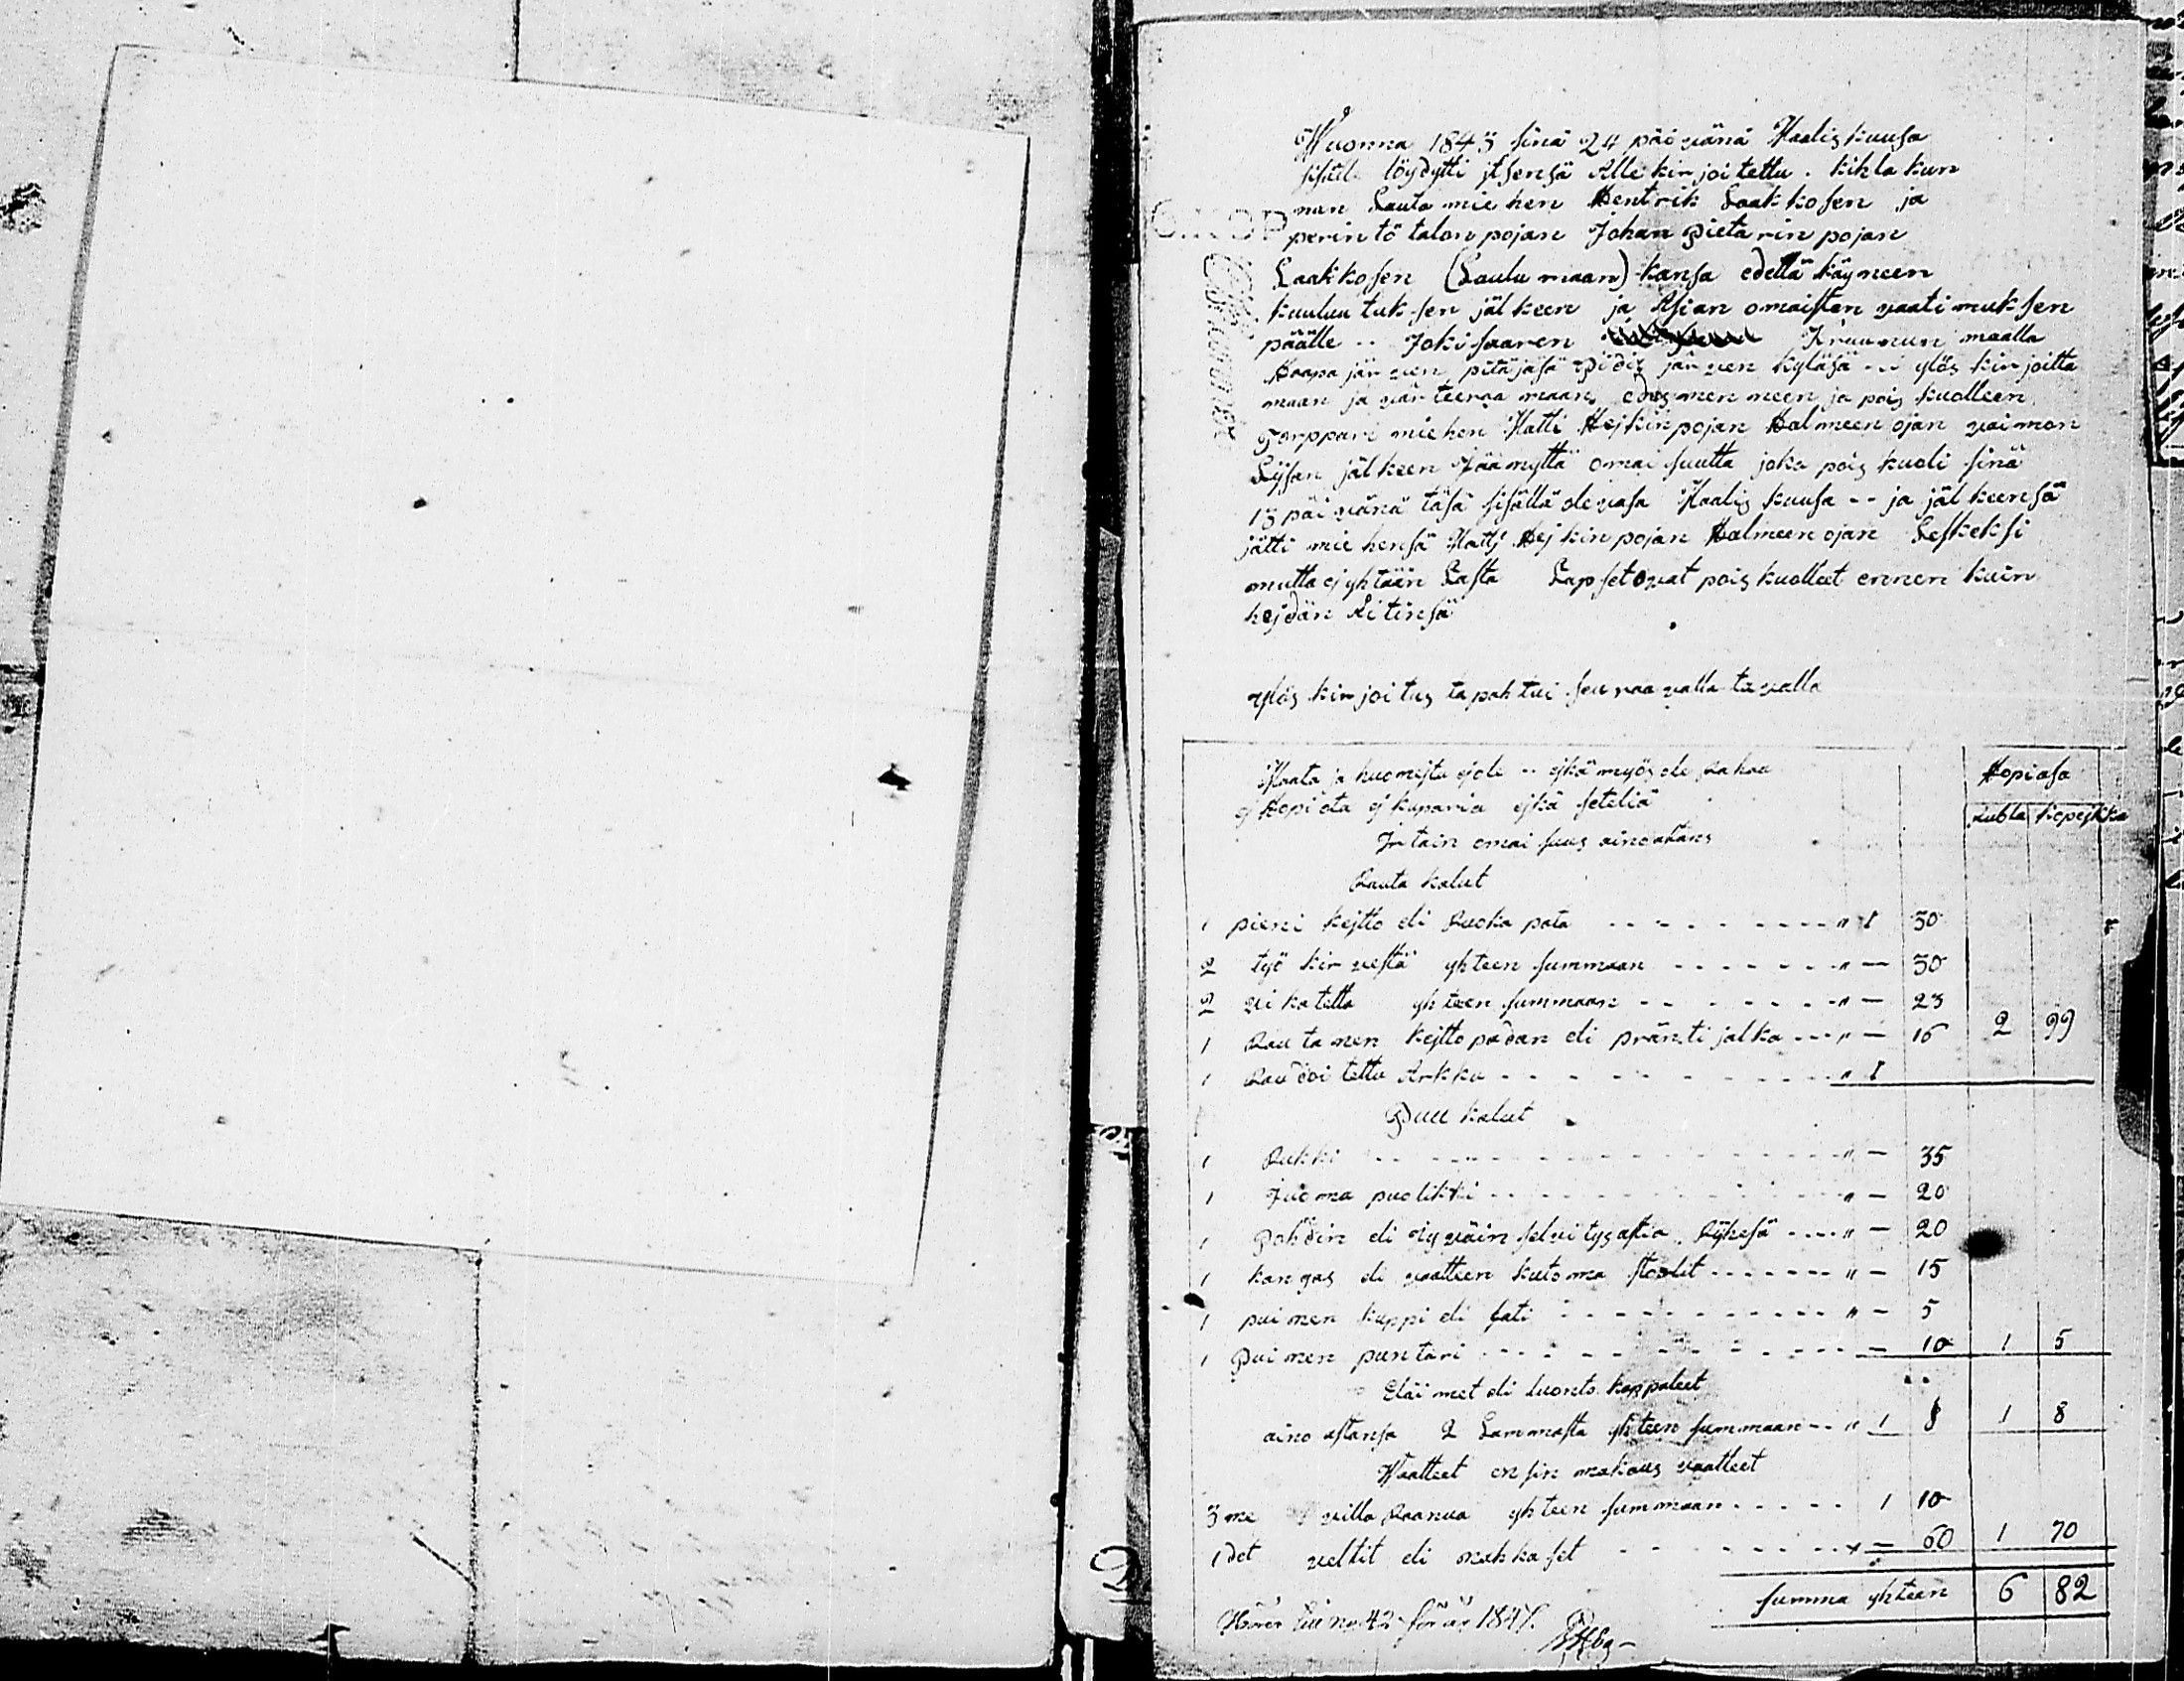 Wuonna 1843 sinä 24 päivänä Maaliskuusa
sisälle löydytti itsensä Allekirjoitettu. kihlakun
nan Lautamiehen Hentrik Laakkosen ja
perintö talonpojan Johan Pietarin pojan
Laakkosen (Laulumaan) kansa edellä käyneen
kuulutuksen jälkeen ja Asian omaisten vaatimuksen
päälle -- Jokisaaren Kruunun maalla
Haapajärven pitäjäsä Pidisjärven kyläsä -- ylös kirjoitta
maan ja värteeraamaan edesmenneen ja pois kuolleen
Torpparimiehen Matti Hejkinpojan Halmeenojan vaimon
Lijsan jälkeen Jäänyttä omaisuutta joka pois kuoli sinä
13 päivänä täsä sisällä olevasa Maaliskuusa -- ja jälkeensä
jätti miehensä Matti Hejkinpojan Halmeenojan Leskeksi
mutta ej yhtään Lasta Lapset ovat pois kuolleet ennen kuin
hejdän Äitinsä
Ylös kirjoitus tapahtui seuraavalla tavalla
Maata ja huonejta ejole -- ejkä myös ole Rahaa
ej Hopiata ej kuparia ejkä seteliä
Hopiasa
Rubla kopejkka
Irtain omaisuus ainoastans
Rauta kalut
1 pieni kejtto eli Ruoka pata - - - " 1 30
2 työ kirvestä yhteen summaan - - - " — 30
2 vikatetta yhteen summaan - - - " — 23
1 Rautanen kejttopadan eli pränti jalka - - - " — 16 2 99
1 Raudoitettu Arkku - - - " 1
Puu kalut
1 Rukki - - - " — 35
1 Juoma puolikki - - - " — 20
1 Pohdin eli Jyväin selvitysastia. Rýhesä - - - " — 20
1 kangas eli vaatteen kutoma stoolit - - - " — 15
1 puinen kuppi eli fati - - - " — 5
1 Puinen puntari - - - — 10 1 5
Eläimet eli luonto kappaleet
ainoastansa 2 Lammasta yhteen summaan - - " 1 8 1 8
Waatteet ensin makaus vaatteet
3 me villa Raanua yhteen summaan - - - 1 10
1 det veltit eli nahkaset - - - " — 60 1 70
summa yhteen 6 82
No 42 för år 1847.